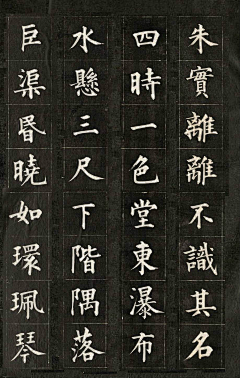 朱實離離不識其名
四時一色堂東瀑布
水懸三尺下階隅落
巨渠昏曉如環珮琴